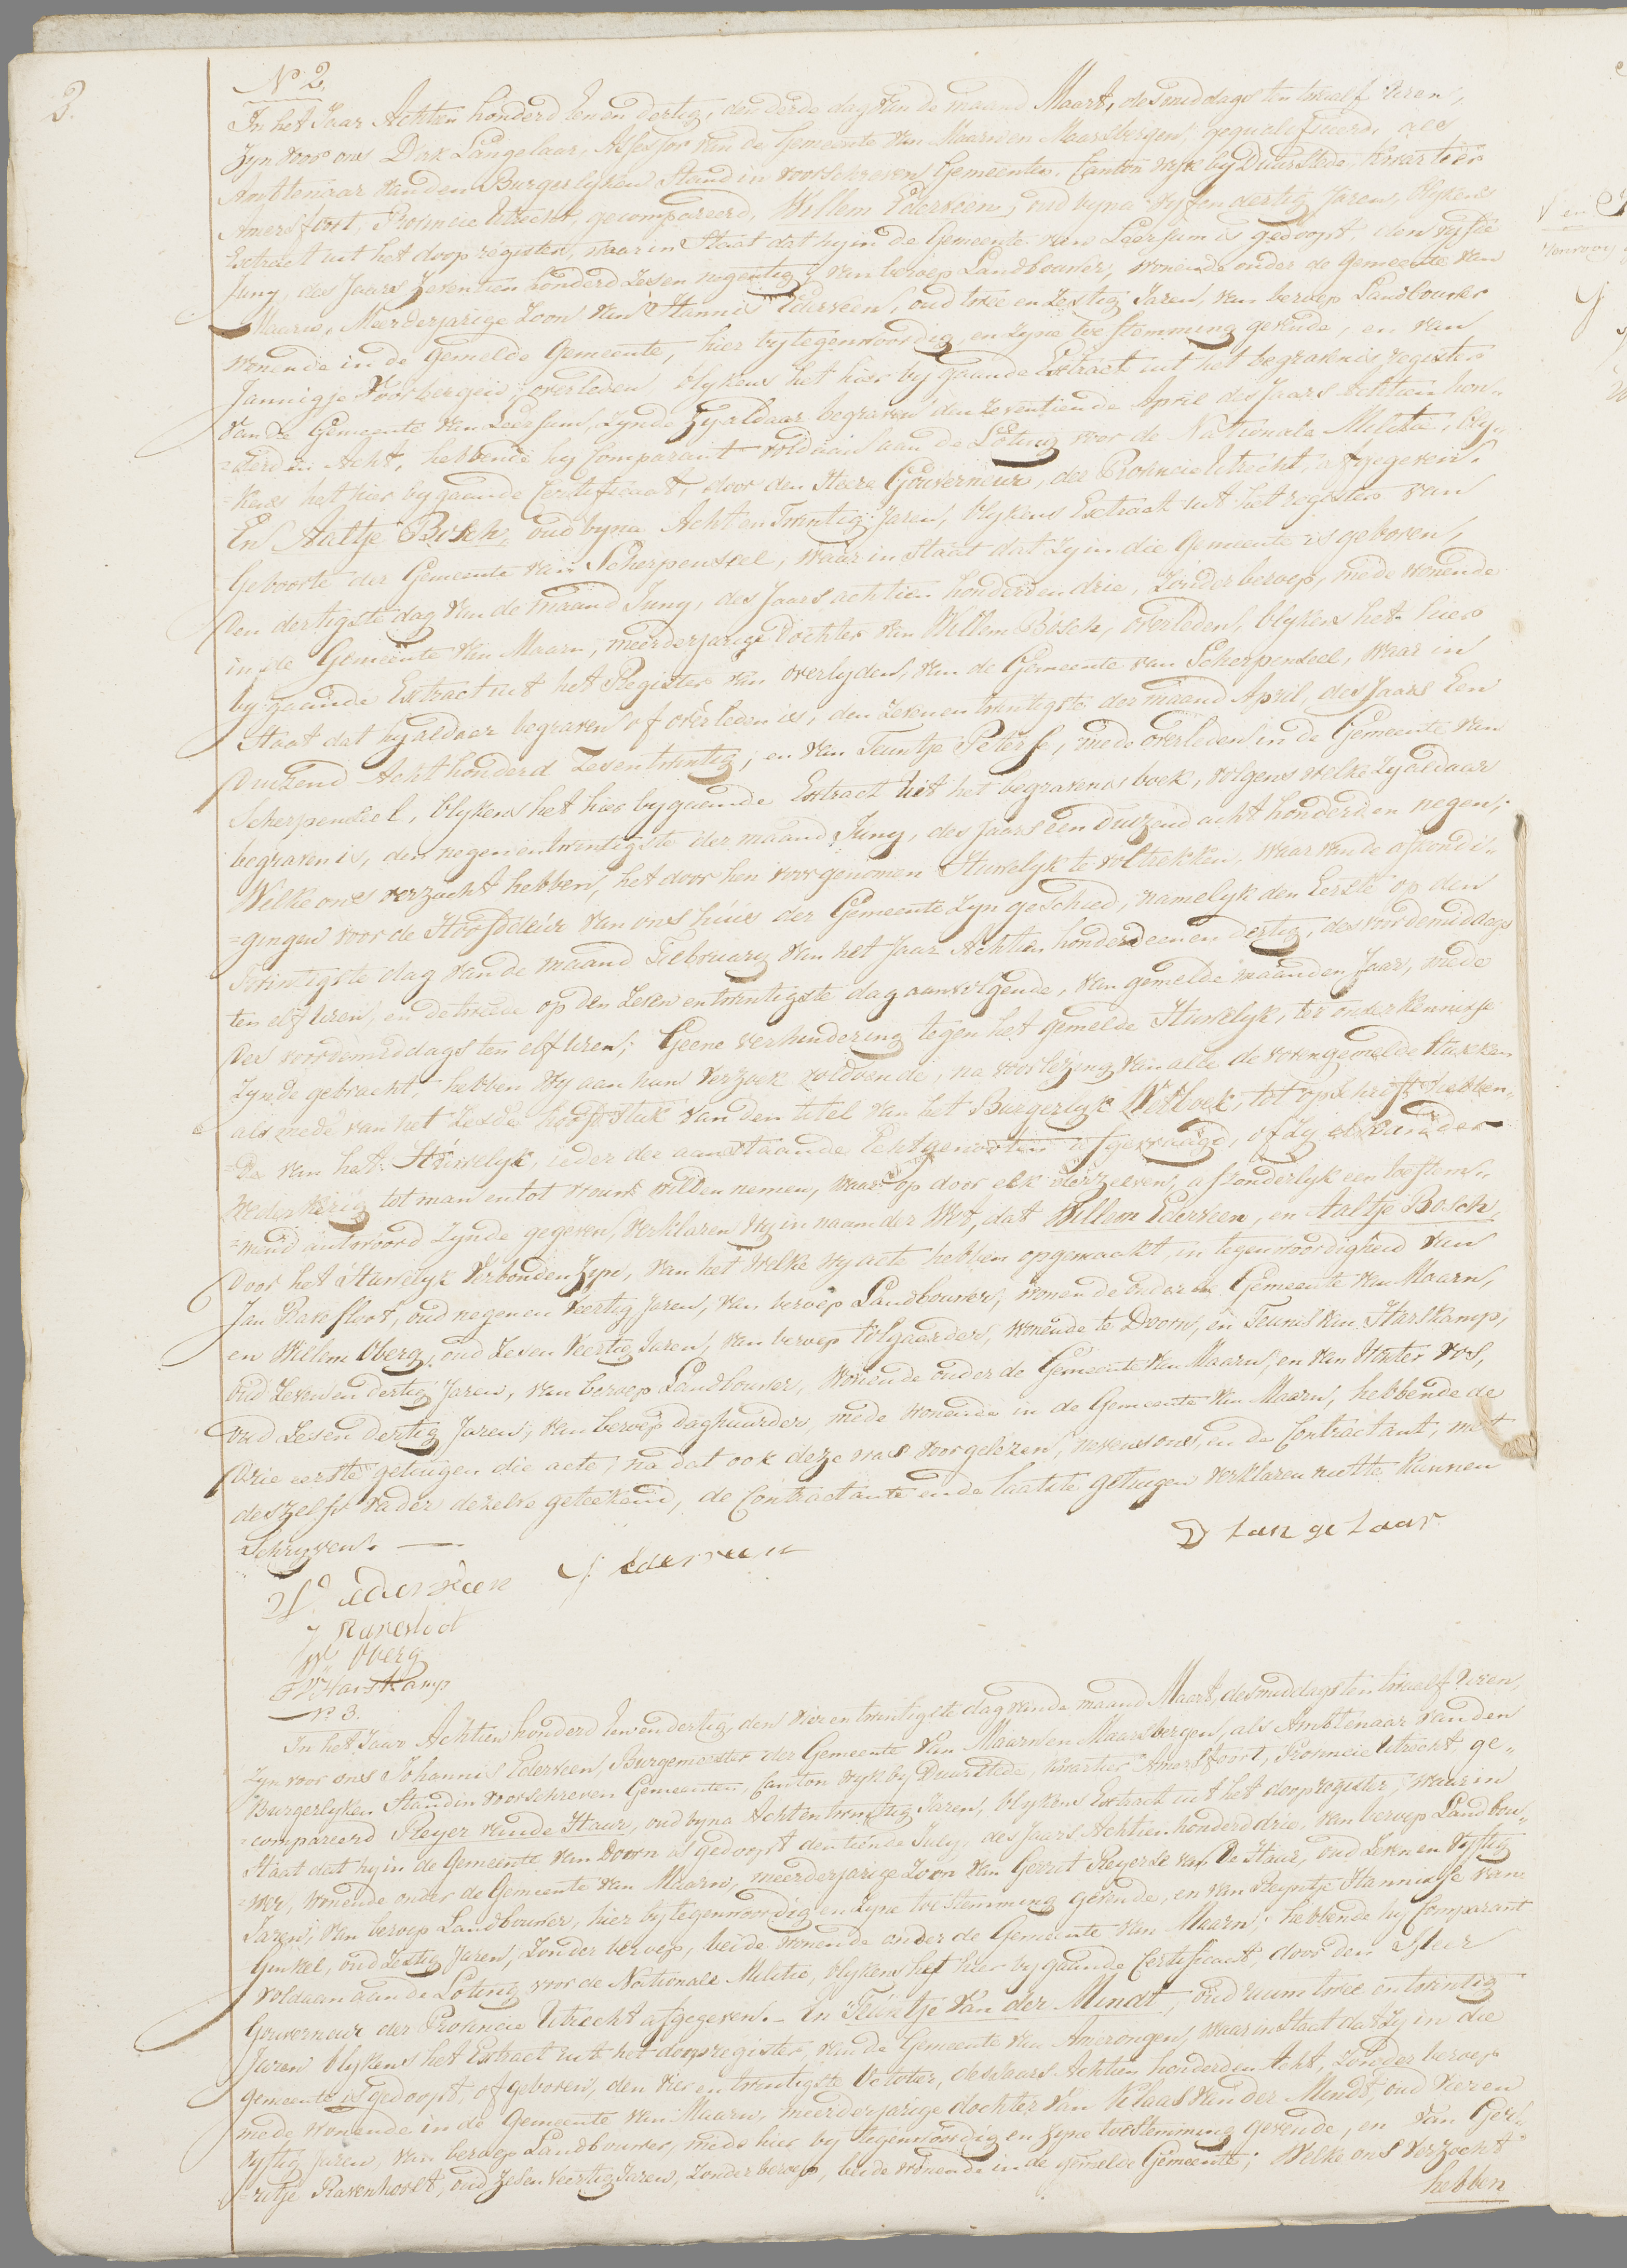 2.
No 2,
In het Jaar Achtien honderd Eenen dertig, den derde dag van de maand Maart, des middags ten twaalf Uren,
Zyn voor ons Dirk Langelaar, Assessor van de Gemeente van Maarn en Maarsbergen, gequalificeerd, als
Ambtenaar van den Burgerlyken Stand in voorschreven Gemeenten, Canton Wyk by Duurstede, Kwartier
Amersfoort, Provincie Utrecht, gecompareerd, Willem Ederveen, oud byna vyf en dertig Jaren, blykens
Extract uit het doop register, waar in Staat dat hy in de Gemeente van Leersum is gedoopt, den vyfde
Juny, des Jaars Zeventien honderd Zes en negentig, van beroep Landbouwer, wonende onder de Gemeente van
Maarn, Meerderjarige Zoon van Hannis Ederveen, oud twee en Zestig Jaren, van beroep Landbouwer
wonende in de gemelde Gemeente, hier by tegenwoordig, en Zyne toestemming gevende, en van
Jannigje Voorbergen, overleden, blykens het hier by gaande Extract uit het begravenis register
van de Gemeente van Leersum, Zynde Zy aldaar begraven den Zeventiende April des Jaars Achtien hon„
=derd en Acht, hebbende hy Comparant voldaan aan de Loting voor de Nationale Militie, bly„
=kens het hier by gaande Certificaat, door den Heere Gouverneur, der Provincie Utrecht, afgegeven.
En Aaltje Bosch, oud byna Acht en Twintig Jaren, blykens Extract uit het register van
Geboorte der Gemeente van Scherpenseel, waar in Staat dat Zy in die Gemeente is geboren,
den dertigste dag van de maand Juny, des Jaars achtien honderd en drie, Zonder beroep, mede wonende
in de Gemeente van Maarn, meerderjarige dochter van Willem Bosch, overleden, blykens het hier
by gaande Extract uit het Register van overlyden, van de Gemeente van Scherpenseel, waar in
Staat dat hy aldaar begraven of overleden is, den Zeven en twintigste der maand April, des Jaars Een
Duizend Acht honderd Zes en twintig; en van Teuntje Peterse, mede overleden in de Gemeente van
Scherpenseel, blykens het hier by gaande Extract uit het begravenis boek, volgens welke Zy aldaar
begraven is, den negen en twintigste der maand Juny, des Jaars een Duizend acht honderd en negen;
Welke ons verzocht hebben, het door hen voorgenomen Huwelyk te voltrekken, waar van de afkondi„
=gingen voor de Hoofddeur van ons huis der Gemeente Zyn geschied, namelyk den Eerste op den
Twintigste dag van de maand February van het Jaar Achtien honderd eenen dertig, des voordemiddags
ten elf Uren, en de tweede op den Zeven en twintigste dag aanvolgende, van gemelde maand en Jaar, mede
des voordemiddags ten elf Uren; Geene verhindering tegen het gemelde Huwelyk, ter onzer kennisse
Zynde gebracht, hebben Wy aan hun Verzoek voldoende, na voorlezing van alle de vorengemelde stukken
als mede van het Zesde hoofdstuk van den titel van het Burgerlyk Wetboek, tot opschrift hebben„
=de van het Huwelyk, ieder der aanstaande Echtgenooten afgevraagd, of Zy elkander
wederkerig tot man en tot vrouw willen nemen, waar op door elk derzelven, afzonderlyk een toestem„
=mend antwoord Zynde gegeven, verklaren Wy in naam der Wet, dat Willem Ederveen, en Aaltje Bosch,
Door het Huwelyk Verbonden Zyn, van het welke wy acte hebben opgemaakt, in tegenwoordigheid van
Jan Ravesloot, oud negen en Veertig Jaren, van beroep Landbouwer, wonende onder de Gemeente van Maarn,
en Willem Oberg, oud Zes en Veertig Jaren, van beroep tolgaarder, wonende te Doorn, en Teunis van Harskamp,
oud Zeven en dertig Jaren, van beroep Landbouwer, wonende onder de Gemeente van Maarn, en van Wouter Vos,
oud Zes en dertig Jaren, van beroep daghuurder, mede wonende in de Gemeente van Maarn, hebbende de
drie eerste getuigen die acte, na dat ook deze was voorgelezen, nevens ons, en de Contractant, met
deszelfs vader dezelve geteekend, de Contractante en de laatste getuigen verklaren niet te kunnen
Schryven. —
D Langelaar
W. ederveen J ederveen
J Ravesloot
W Oberg
T V Harskamp
No 3.
In het Jaar Achtien honderd Eenendertig, den vier en twintigste dag van de maand Maart, des middags ten twaalf Uren,
Zyn voor ons Johannis Ederveen, Burgemeester der Gemeente van Maarn en Maarsbergen, als Ambtenaar van den
Burgerlyken Stand in voorschreven Gemeenten, Canton Wyk by Duurstede, Kwartier Amersfoort, Provincie Utrecht, ge„
=compareerd Reyer van de Haar, oud byna Acht en twintig Jaren, blykens Extract uit het doopregister, waar in
Staat dat hy in de Gemeente van Doorn is gedoopt den tiende July, des Jaars Achtien honderd drie, van beroep Landbou„
=wer, wonende onder de Gemeente van Maarn, meerderjarige Zoon van Gerrit Reyerse van De Haar, oud Zeven en Vyftig
Jaren, van beroep Landbouwer, hier by tegenwoordig en Zyne toestemming gevende, en van Reyntje Hannisse van
Ginkel, oud Zestig Jaren, Zonder beroep, beide wonende onder de Gemeente van Maarn; hebbende hy Comparant
voldaan aan de Loting voor de Nationale Militie, blykens het hier by gaande Certificaat, door den Heer
Gouverneur der Provincie Utrecht afgegeven. – En Teuntje Van der Mindt, oud ruim twee en twintig
Jaren blykens het Extract uit het doopregister, van de Gemeente van Amerongen, waar in Staat dat Zy in die
gemeente is gedoopt, of geboren, den vier en twintigste October, des Jaars Achtien honderd en Acht, Zonder beroep
mede wonende in de Gemeente van Maarn, meerderjarige dochter van Klaas van der Mindt, oud Vier en
vyftig Jaren, van beroep Landbouwer, mede hier by tegenwoordig en Zyne toestemming gevende, en van Ger„
=ritje Ravenhorst, oud Zes en Veertig Jaren, Zonder beroep, beide wonende in de gemelde Gemeente; Welke ons Verzocht
hebben